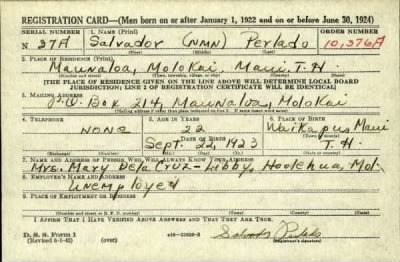 REGISTRATION CARD—(Men born on or after January 1, 1922 and on or before June 30, 1924)
SERIAL NUMBER 1. NAME (Print) ORDER NUMBER
N 27A Salvador (NMN) Perlado 10,376A
(First) (Middle) (Last)
2. PLACE OF RESIDENCE (Print)
Maunaloa, Molokai, Maui T.H.
(Number and street) (Town, township, village, or city) (County) (State)
[THE PLACE OF RESIDENCE GIVEN ON THE LINE ABOVE WILL DETERMINE LOCAL BOARD
JURISDICTION; LINE 2 OF REGISTRATION CERTIFICATE WILL BE IDENTICAL]
3. MAILING ADDRESS
P.O. Box 214, Maunaloa, Molokai
4. TELEPHONE 5. AGE IN YEARS 6. PLACE OF BIRTH
None 22 Waikapu, Maui
DATE OF BIRTH
Sept. 22, 1923 T.H.
7. NAME AND ADDRESS OF PERSON WHO WILL ALWAYS KNOW YOUR ADDRESS
Mrs. Mary Dela Cruz - Libby, Hoolehua, Mol.
8. EMPLOYER'S NAME AND ADDRESS
Unemployed
9. PLACE OF EMPLOYMENT OR BUSINESS
(Number and street or R. F. D. number) (Town) (County) (State)
I AFFIRM THAT I HAVE VERIFIED ABOVE ANSWERS AND THAT THEY ARE TRUE.
D. S. S. Form 1
(Revised 6-1-42) (over) Salvador Perlado
(Registrant's signature)